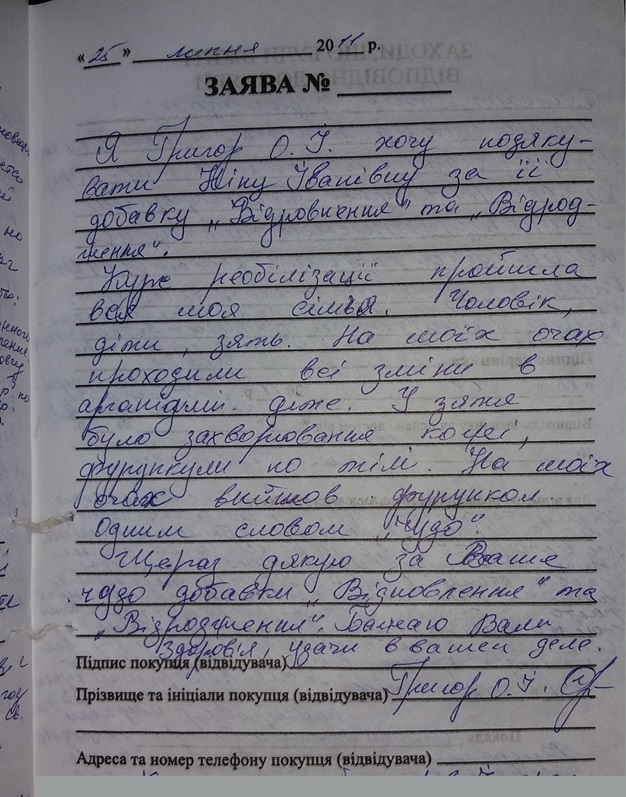 « 25 » липня 2011 р.
ЗАЯВА №
Я Григор О. І. хочу подяку-
вати Ніну Іванівну за її
добавку „Відровнення" та „Відрод-
ження".
Курс реобілізації пройшла
вся моя сімья. Чоловік,
діти, зять. На моїх очах
проходили всі зміни в
діже. У зятя
було захворювання
фурункули по тілі. На моїх
очах вийшов фурункол
Одним словом „Чудо".
Щераз дякую за Ваше
чудо добавки „Відновлення" та
„Візродження". Бажаю Вам
Здоров'я, удачи в вашем деле.
Підпис покупця (відвідувача)
Прізвище та ініціали покупця (відвідувача) Григор О. І.
Адреса та номер телефону покупця (відвідувача)